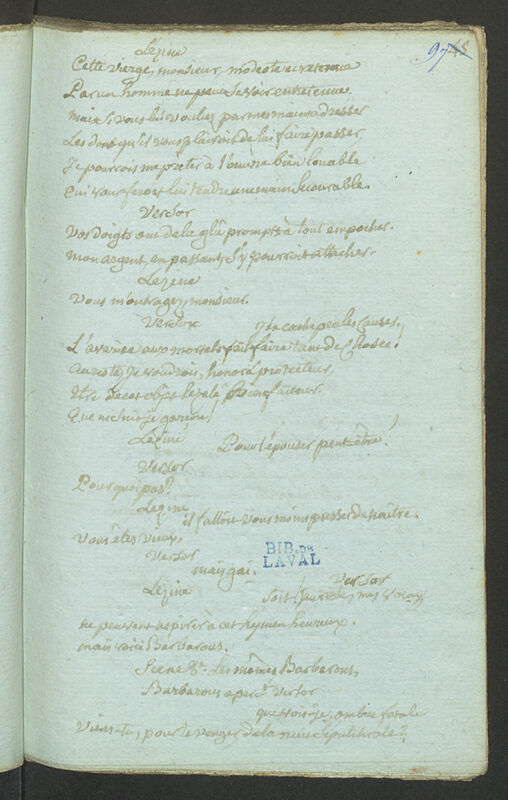 97
Lezine
Cette vierge, monsieur, modeste et retenue
Par un homme ne peut se voir entretenue.
mais si vous lui vouliez par mes mains adresser
Les dons qu'il vous plairoit de lui faire passer,
Je pourrois me prêter à l'oeuvre bien louable
qui vous feroit lui tendre une main secourable.
Versor
Vos doigts ont de la glû prompts à tout empocher.
mon argent, en passant, s'y pourroit attacher.
Lezine
Vous m'outragez, monsieur.
Versor
je n'en cache pas les causes,
L'avarice aux mortels fait faire tant de choses!
au reste, je voudrois, honoré protecteur,
Etre de cet objet le bienfaiteur.
Que ne suis-je garçon!
Lezine
Pour l'épouser peut-être!
Versor
Pourquoi pas?
Lezine
il falloit vous moins presser de naître.
Vous êtes vieux.
Versor
mais gai.
BIB. DE
LAVAL
Lezine
Versor
Soit!
ne peuvent aspirer à cet hymen heureux.
mais voici Barbarous.
Scene 8e. Les mêmes, Barbarous,
Barbarous aperct. Versor
que vois-je, ombre fatale
Viens-tu, pour te venger de la nuit sépulchrale?